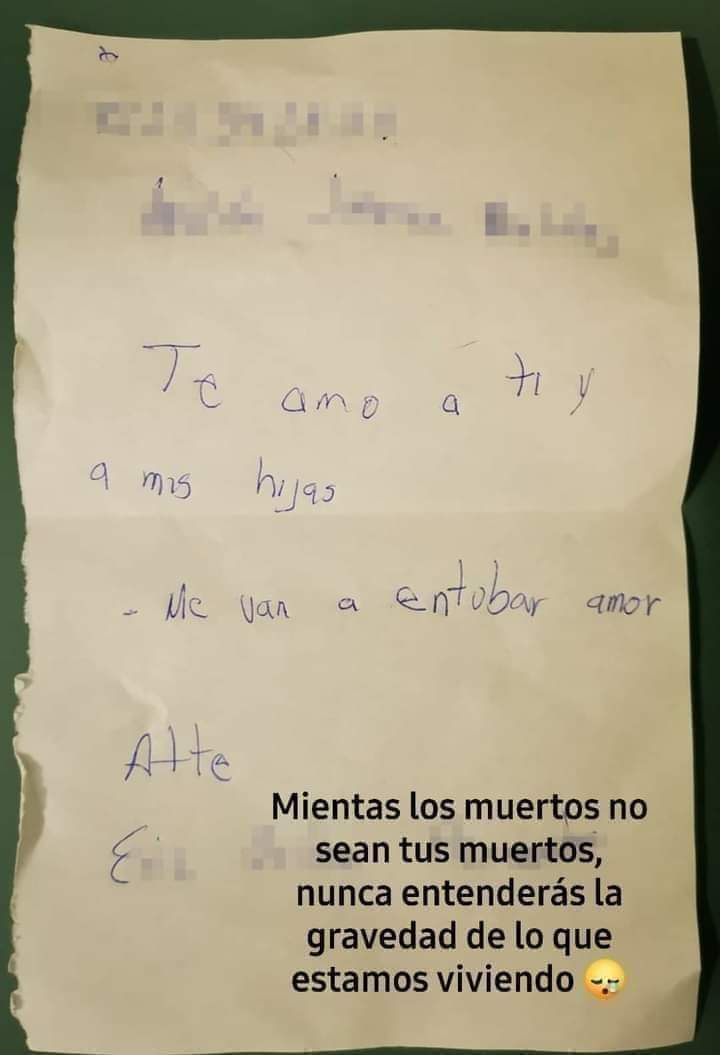 Te amo a ti y
a mis hijas
- Me van a entubar amor
Atte
Mientas los muertos no
sean tus muertos,
nunca entenderás la
gravedad de lo que
estamos viviendo 😪